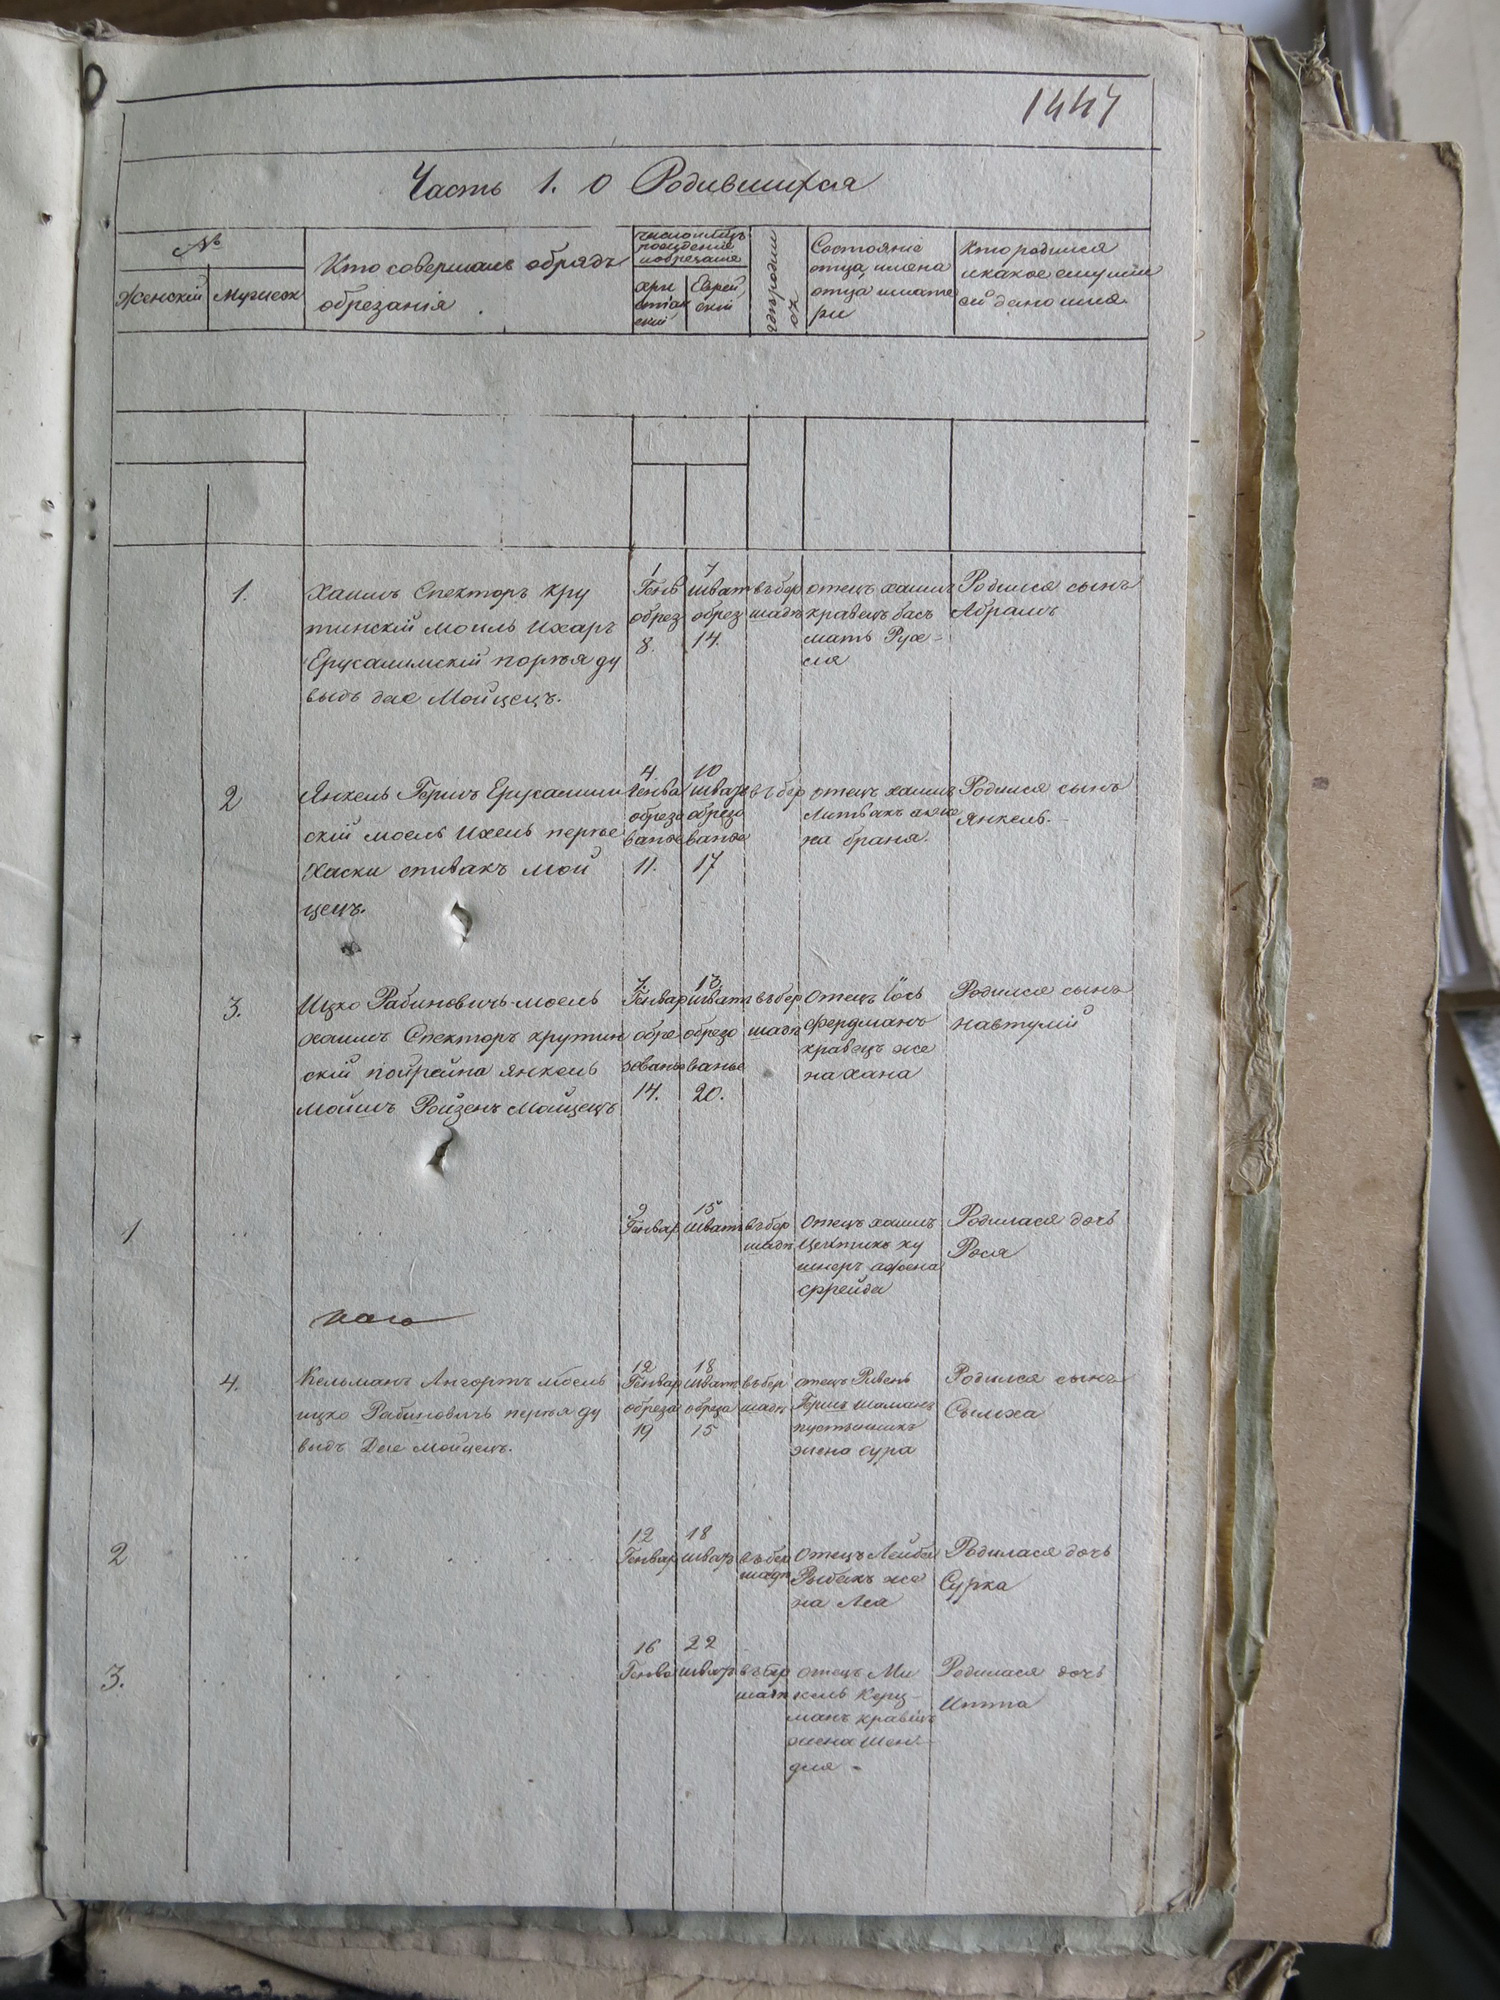 1447
Часть 1. о Родившихся
№
Женскій
Мужеск
Кто совершалъ обрядъ
обрезанія
число и мѣцъ
рождения
и обрезания
хри
стіан
скій
Еврей
скій
где родил
ся
Состояніе
отца имена
отца и мате
ри
Кто родился
и какое ему или
ей дано имя.
1.
Хаимъ Спекторъ кру
тинскій моиль Ихаръ
Ерусалимскій
выдъ дае Мойцецъ.
1
Генв
обрез
8.
7
шват
обрез
14.
въ бер
шадѣ
отецъ хаимъ
кравецъ басъ
мать Рухе=
ля
Родился сынъ
Абрамъ
2
Янкель Гершъ Ерусалим
скій моель Ихель
Хаски спивакъ мой
цецъ.
4.
Генва
обрезо
ванье
11.
10
шват
обрезо
ванье
17
въ бер
отецъ хаимъ
Литвакъ а же
на браня.
Родился сынъ
Янкель.
3.
Ицко Рабиновичъ моель
хаимъ Спекторъ крутин
скій пойрейна янкель
Мойшъ Ройзенъ Мойцецъ
7.
Генвар
обре
зованье
14.
13
Шват
обрезо
ванье
20.
въ бер
шадѣ
Отецъ Іось
фердманъ
кравецъ же
на хана
Родился сынъ
Навтулій
1
9
Генвар
15
Шват
въ бер
шадѣ
Отецъ хаимъ
ку
шнеръ а жена
фрейда
Родилася дочь
Рося
4.
Кельманъ Ангортъ моель
ицко Рабиновичъ перья ду
выдъ Дае мойцецъ.
12
Генвар
обреза
19
18
Шват
обреза
15
въ бер
шадѣ
отецъ Ривень
Гершъ шаманъ
жена сура
Родился сынъ
Сымха
2
12
Генвар
18
шват
въ бер
шадѣ
Отецъ Лейба
Рыбакъ же
на Лея
Родилася дочь
Сурка
3.
16
Генва
22
шват
въ бер
шадѣ
отецъ Ми
хель Керц-
манъ кравецъ
жена шен-
для -
Родилася дочь
Итта